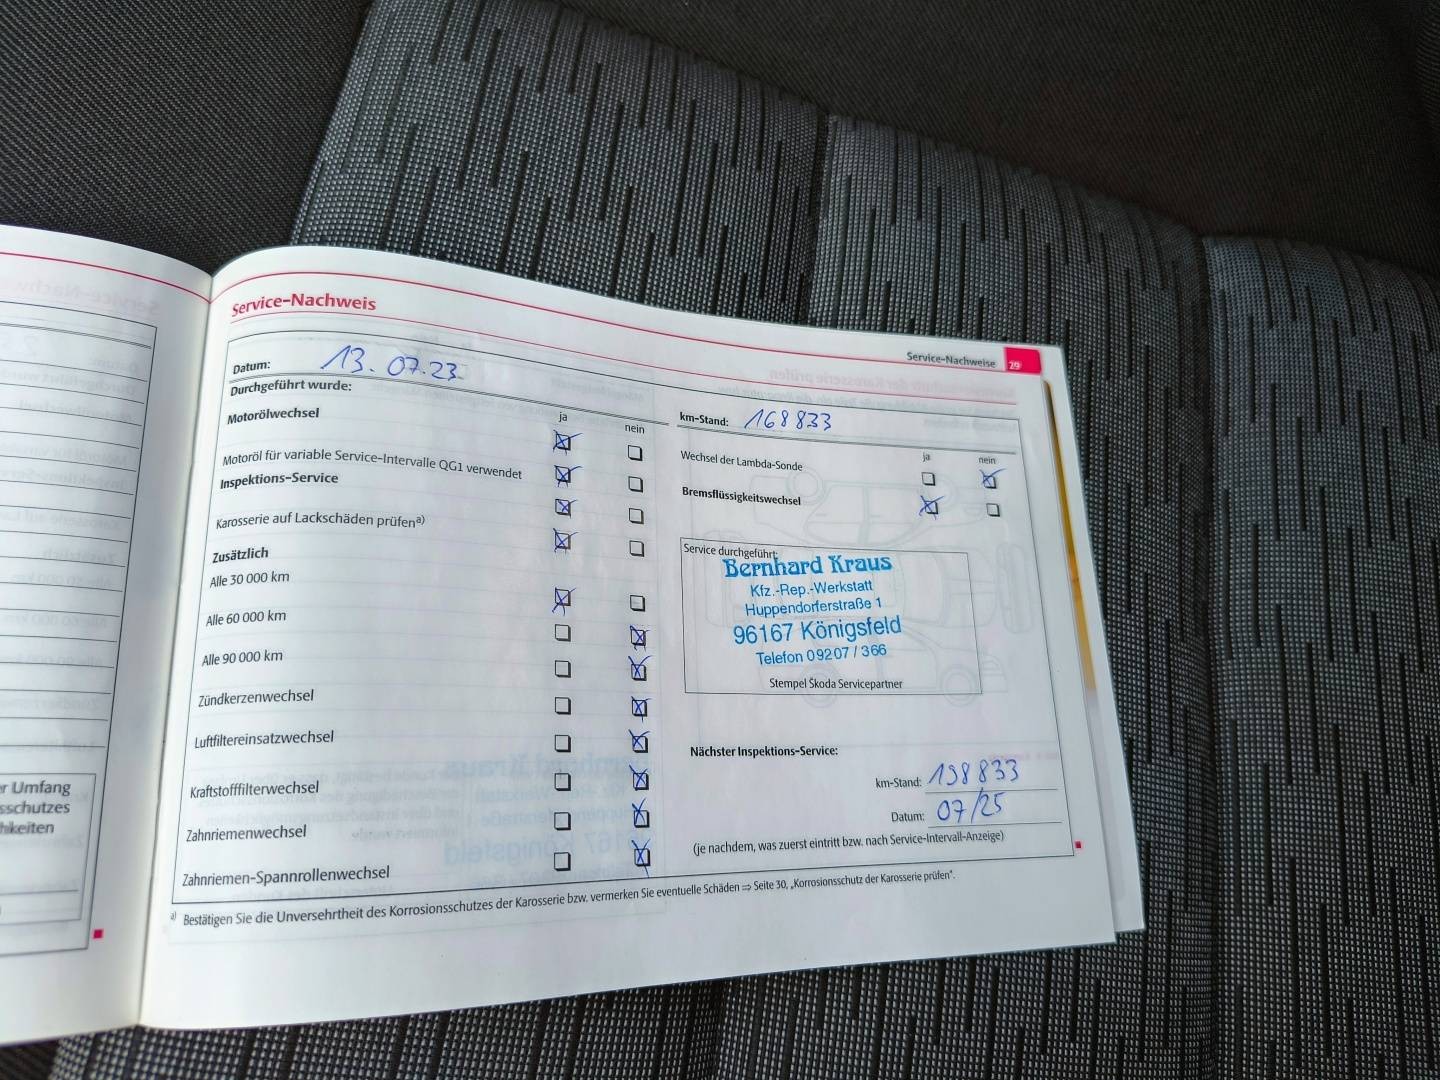 Service-Nachweis
Service-Nachweise 29
Datum: 13.07.23
Durchgeführt wurde:
ja nein
Motorölwechsel
Motoröl für variable Service-Intervalle QG1 verwendet
Inspektions-Service
Karosserie auf Lackschäden prüfena)
Zusätzlich
Alle 30 000 km
Alle 60 000 km
Alle 90 000 km
Zündkerzenwechsel
Luftfiltereinsatzwechsel
Kraftstofffilterwechsel
Zahnriemenwechsel
Zahnriemen-Spannrollenwechsel
km-Stand: 168833
ja nein
Wechsel der Lambda-Sonde
Bremsflüssigkeitswechsel
Service durchgeführt:
Bernhard Kraus
Kfz.-Rep.-Werkstatt
Huppendorferstraße 1
96167 Königsfeld
Telefon 09207 / 366
Stempel Škoda Servicepartner
Nächster Inspektions-Service:
km-Stand: 198833
Datum: 07/25
(je nachdem, was zuerst eintritt bzw. nach Service-Intervall-Anzeige)
a) Bestätigen Sie die Unversehrtheit des Korrosionsschutzes der Karosserie bzw. vermerken Sie eventuelle Schäden ⇒ Seite 30, „Korrosionsschutz der Karosserie prüfen“.
r Umfang
sschutzes
hkeiten